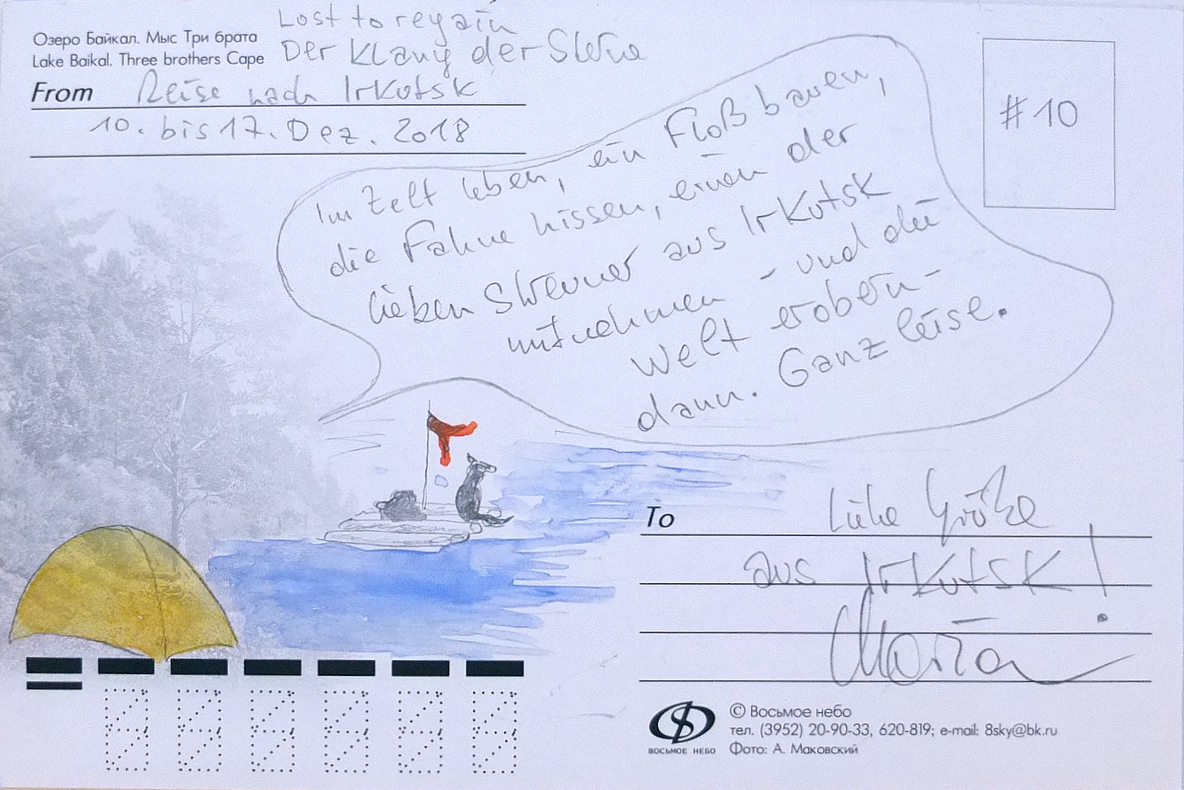 Lost to regain
Der Klang der Stille
Озеро Байкал. Мыс Три брата
Lake Baikal. Three brothers Cape
From Reise nach Irkutsk
10. bis 17. Dez. 2018
#10
Im Zelt leben, ein Floß bauen,
die Fahne hissen, einen der
lieben Streuner aus Irkutsk
mitnehmen – und die
Welt erobern –
dann. Ganz leise.
To Liebe Grüße
aus Irkutsk!
© Восьмое небо
тел. (3952) 20-90-33, 620-819; e-mail: 8sky@bk.ru
Фото: А. Маковский
ВОСЬМОЕ НЕБО